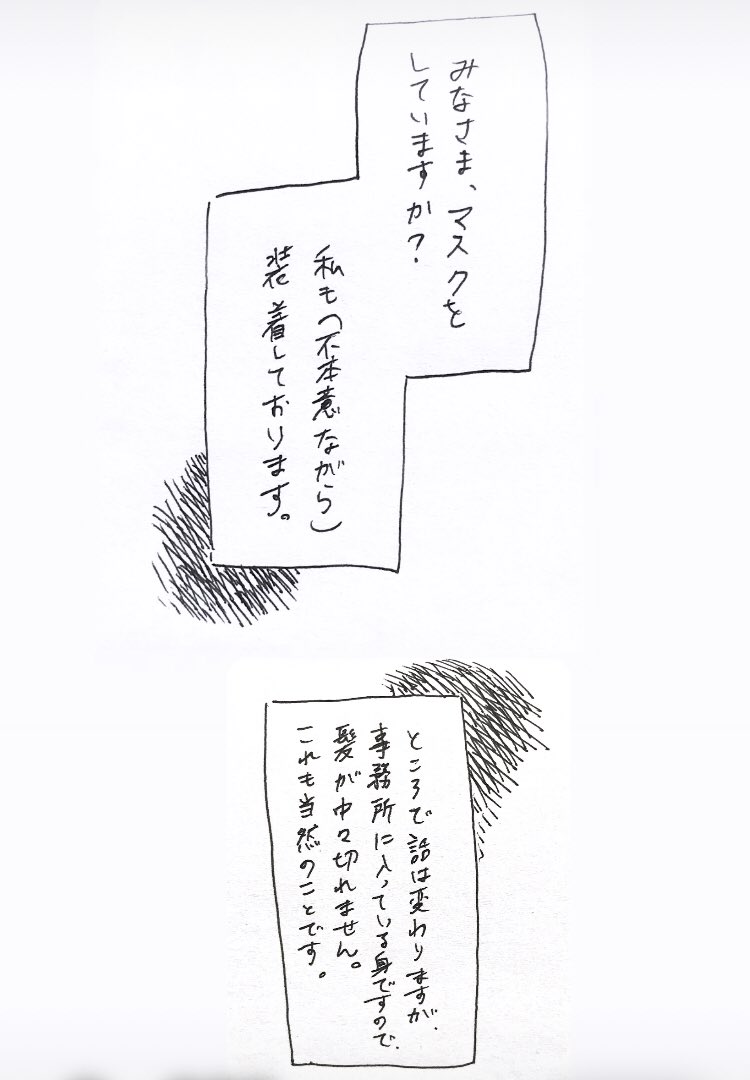 みなさま、マスクを
していますか？
私も（不本意ながら）
装着しております。
ところで話は変わりますが、
事務所に入っている身ですので、
髪が中々切れません。
これも当然のことです。